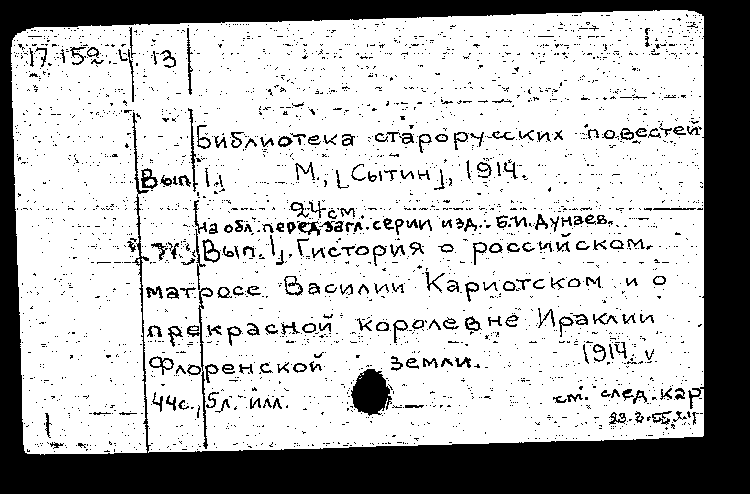 17.152.4.13
1.
Библиотека старорусских повестей
[Вып. 1.] М., [Сытин], 1914.
24 см.
На обл. перед загл. серии изд.: Б.И. Дунаев.
[Вып. 1]. Гистория о российском
матросе Василии Кариотском и о
прекрасной королевне Ираклии
Флоренской земли. 1914.
44 с., 5 л. илл.
см. след. кар